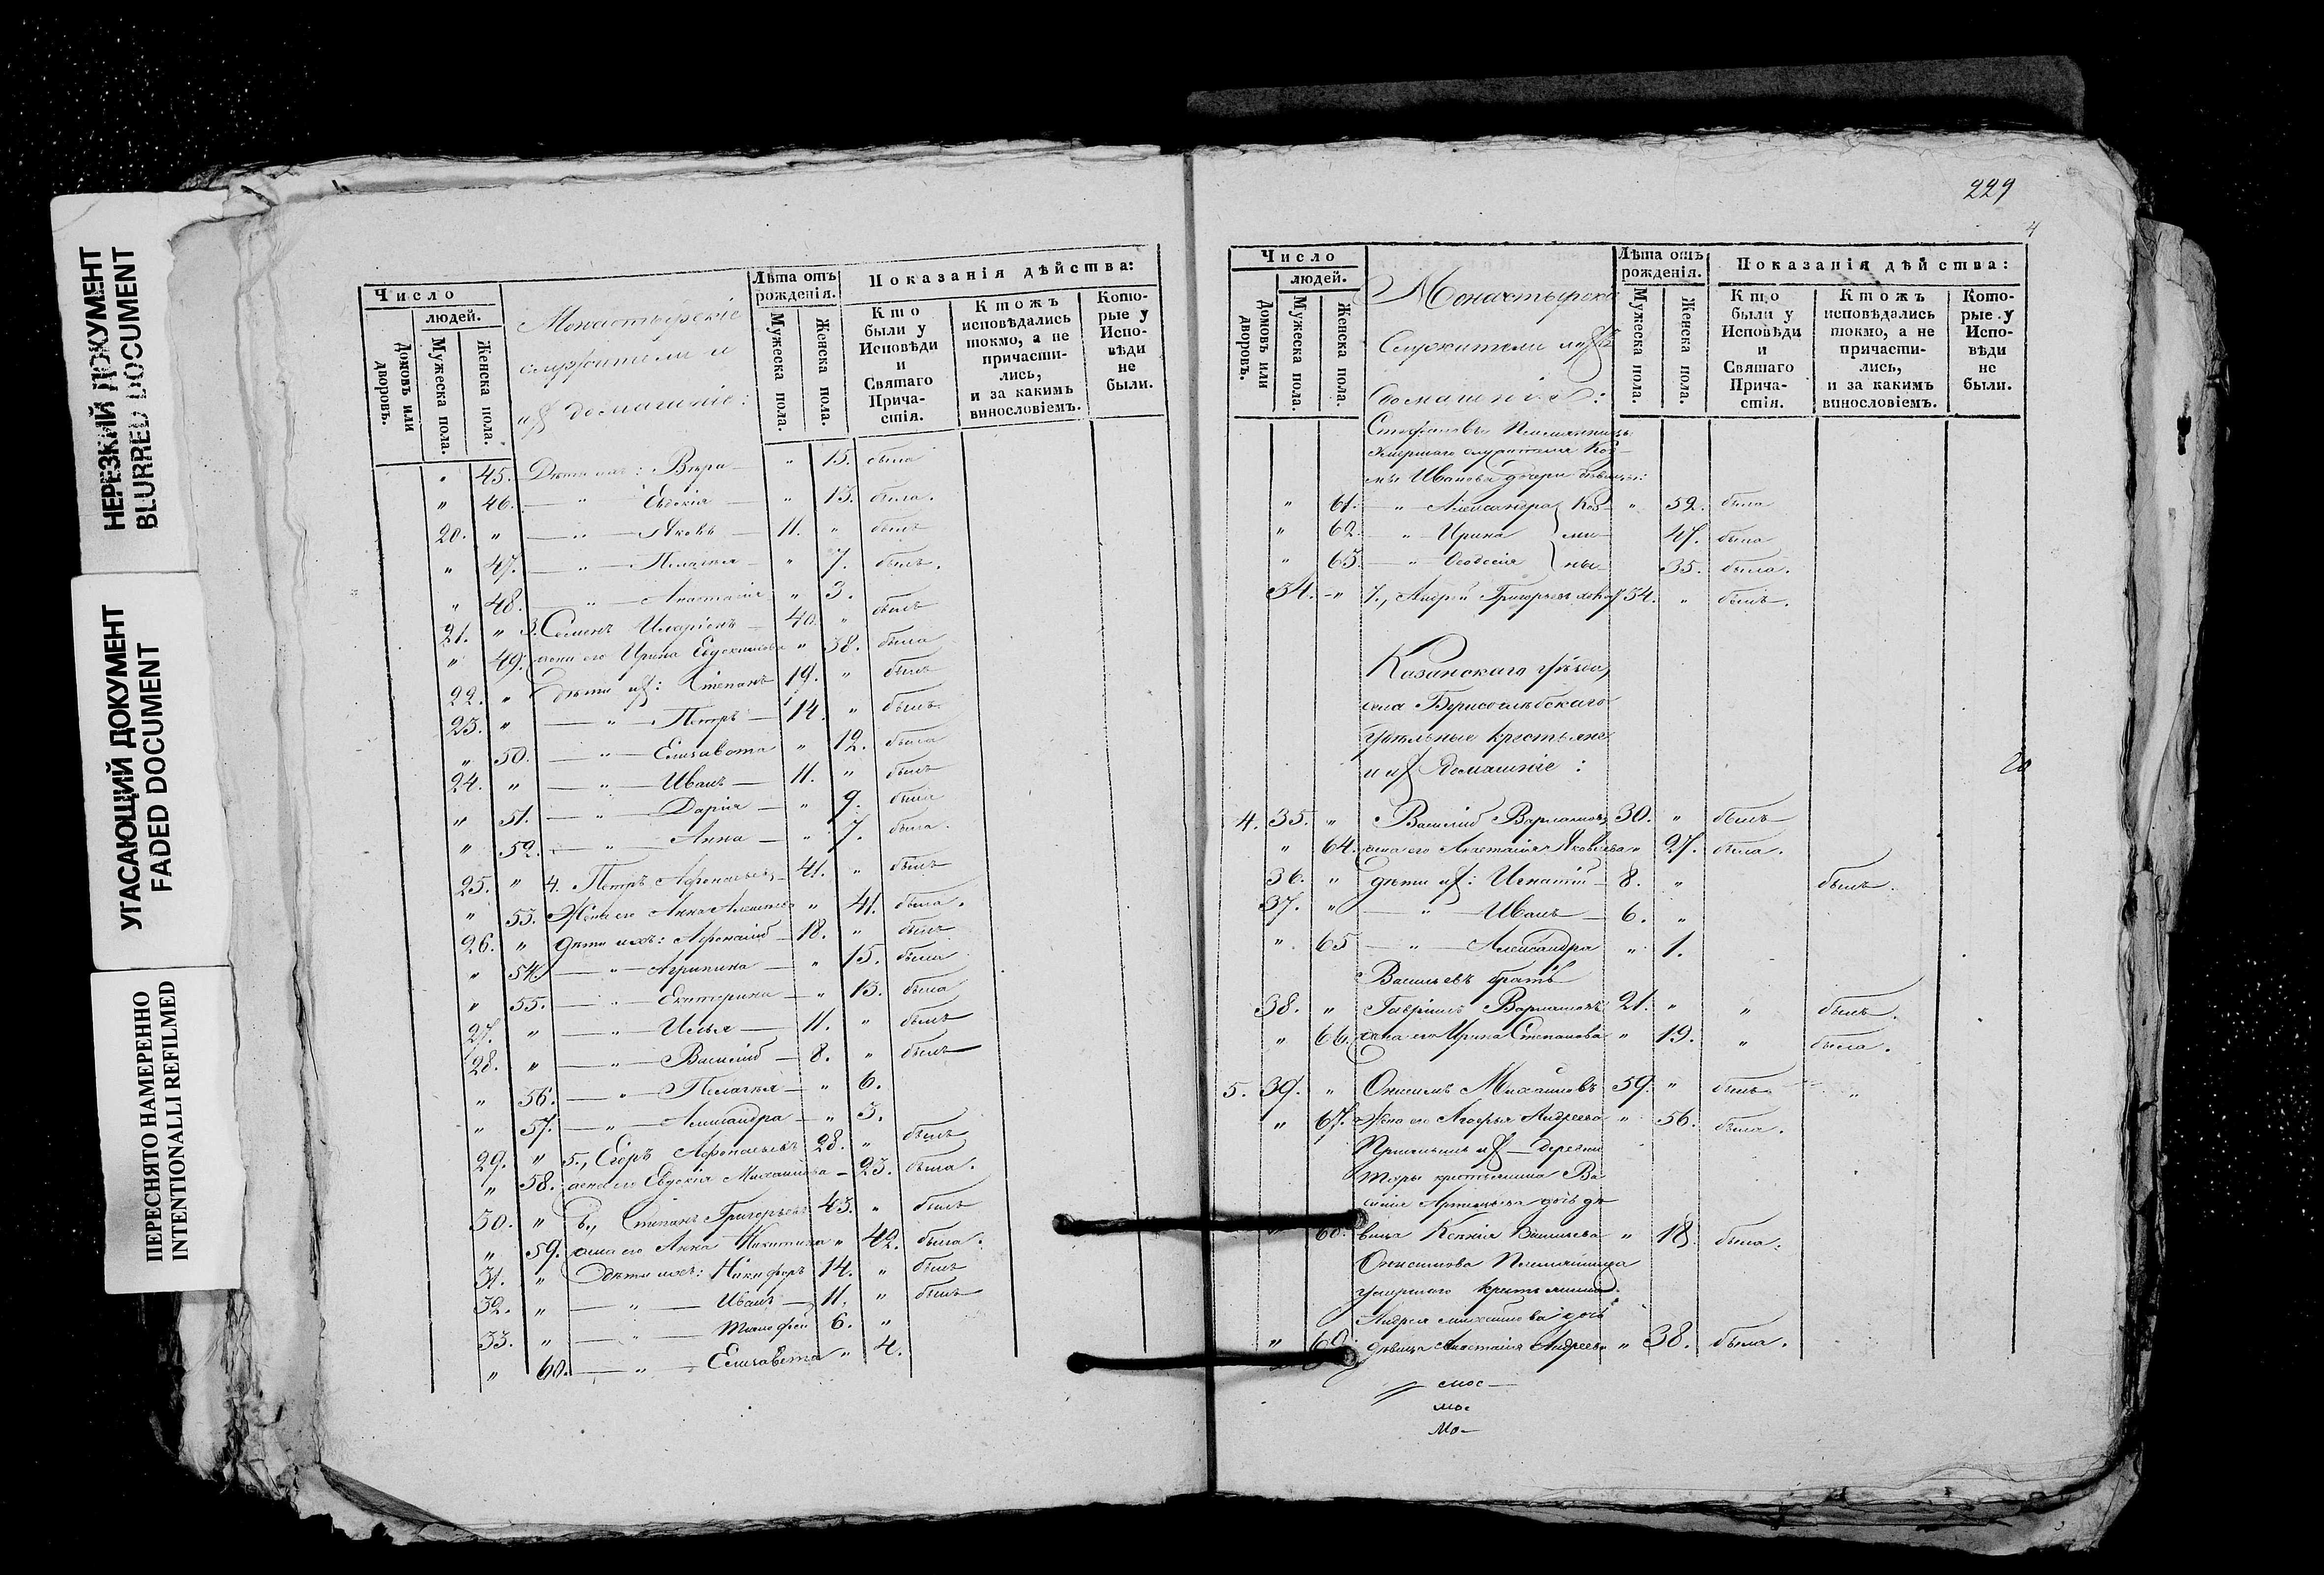 НЕРЕЗКИЙ ДОКУМЕНТ
BLURRED DOCUMENT
УГАСАЮЩИЙ ДОКУМЕНТ
FADED DOCUMENT
ПЕРЕСНЯТО НАМЕРЕННО
INTENTIONALLI REFILMED
Число
людей.
Домовъ или дворовъ.
Мужеска пола.
Женска пола.
Монастырскіе
служители и
ихъ домашніе:
Лѣта отъ рожденія.
Мужеска пола.
Женска пола.
Показанія дѣйства:
Кто были у Исповѣди и Святаго Причастія.
Ктожъ исповѣдались токмо, а не причастились, и за какимъ винословіемъ.
Которые у Исповѣди не были.
" 45. Дѣти ихъ: Вѣра " 15. была
" 46. " Евдокія " 13. была.
20. " " Яковъ 11. " былъ
" 47. " Пелагея " 7. былъ.
" 48. " Анастасія " 3.
21. " 3. Семенъ Иларіонъ 40. " былъ
" 49. жена его Ирина Евдокимова " 38. была
22. " дѣти ихъ: Степанъ 19. " былъ
23. " " Петръ 14. " былъ
" 50. " Елизавета " 12. была
24. " " Иванъ 11. " былъ
" 51. " Дарія " 9. была
" 52. " Анна " 7. была.
25. " 4. Петръ Афонасьевъ 41. " былъ
" 53. Жена его Анна " 41. была.
26. " дѣти ихъ: Афонасій 18. " былъ
" 54. " Агрипина " 15. была
" 55. " Екатерина " 13. была
27. " " Илья 11. " былъ
28. " " Василій 8. " былъ
" 56. " Пелагея " 6.
" 57. " Александра " 3.
29. " 5., Егоръ Афонасьевъ 28. " былъ
" 58. жена его Евдокія Михайлова 23. была.
30. " 6., Степанъ Григорьевъ 43. " былъ
" 59. жена его Анна Никитина " 42. была.
31. " дѣти ихъ: Никифоръ 14. " былъ
32. " " Иванъ 11. " былъ
33. " " Тимофей 6. "
" 60. " Елизавета " 4.
229
4
Число
людей.
Домовъ или дворовъ.
Мужеска пола.
Женска пола.
Монастырскіе
Служители ихъ
Домашніе:
Лѣта отъ рожденія.
Мужеска пола.
Женска пола.
Показанія дѣйства:
Кто были у Исповѣди и Святаго Причастія.
Ктожъ исповѣдались токмо, а не причастились, и за какимъ винословіемъ.
Которые у Исповѣди не были.
Стефановы Племянницы
умершаго служителя Коз-
мы Иванова дочери дѣвицы:
" 61. " Александра Коз- " 52. была
" 62. " Ирина ми- 47. была
" 63. " Ѳеодосія ны 35. была.
34. " 7., Андрей Григорьевъ 54. " былъ.
Казанскаго уѣзда,
села Борисоглѣбскаго
удѣльные крестьяне
и ихъ домашніе:
4. 35. " Василій Варламовъ 30. " былъ
" 64. жена его Анастасія Яковлева " 27. была.
36. " дѣти ихъ: Игнатій 8. " былъ.
37. " " Иванъ 6. "
" 65 " Александра " 1.
Васильевъ братъ
38. " Гавріилъ Варламовъ 21. " " былъ.
" 66. жена его Ирина Степанова " 19. " была.
5. 39. " Онисимъ Михайловъ 59. " былъ "
" 67. Жена его Агафья Андреева " 56. была.
ихъ деревни
крестьянина Ва-
силія дочь дѣ-
" 68. вица Ксенія Васильева " 18. была.
Онисимова Племянница
умершаго крестьянина
Андрея Михайлова дочь
" 69. дѣвица Анастасія Андреева " 38. была.